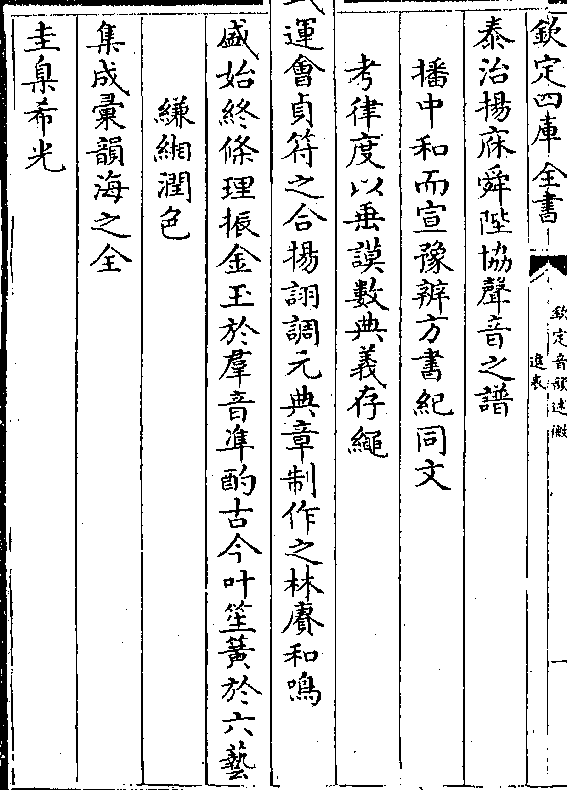 欽定四庫全書
欽定音韻述微
進表
一
泰治揚庥舜陛協聲音之譜
播中和而宣豫辨方書紀同文
考律度以垂謨數典義存繩
式運會貞符之合揚詡調元典章制作之林賡和鳴
盛始終條理振金玉於羣音準酌古今叶笙簧於六藝
縑緗潤色
集成彚韻海之全
圭臬希光